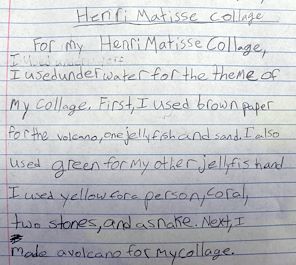 Henri Matisse collage
For my Henri Matisse Collage,
I
I used under water for the theme of
my collage. First, I used brown paper
for the volcano, one jellyfish and sand. I also
used green for my other jellyfish and
I used yellow for a person, coral,
two stones, and a snake. Next, I
made a volcano for my collage.